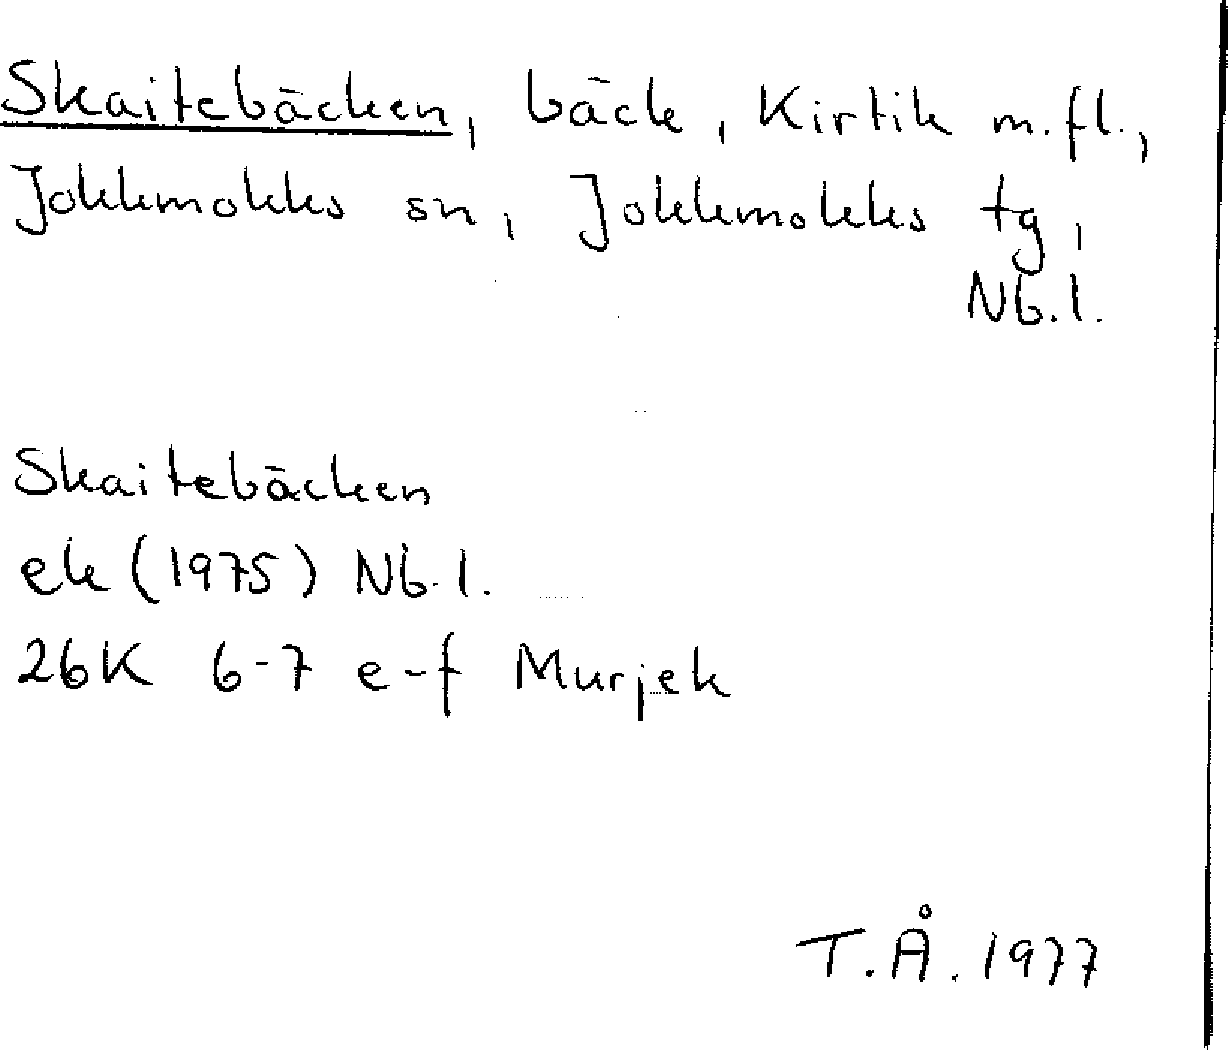 Skaitebäcken, bäck, Kirtik m.fl.,
Jokkmokks sn, Jokkmokks tg,
Nb.l.
Skaitebäcken
ek (1975) Nb.l.
26K 6-7 e-f Murjek
T.Å. 1977